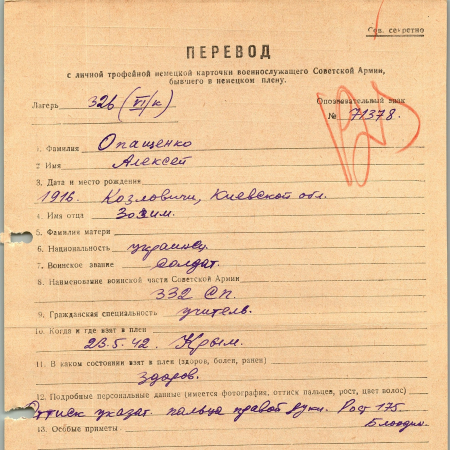 Сов. секретно
ПЕРЕВОД
с личной трофейной немецкой карточки военнослужащего Советской Армии,
бывшего в немецком плену.
Лагерь 326 (VI/к)
Опознавательный знак
№ 71378.
1. Фамилия Опащенко
2. Имя Алексей
3. Дата и место рождения
1916. Козловичи, Киевской обл.
4. Имя отца Зосим.
5. Фамилия матери
6. Национальность украинец
7. Воинское звание солдат.
8. Наименование воинской части Советской Армии
332 СП.
9. Гражданская специальность учитель.
10. Когда и где взят в плен
23.5.42. Крым.
11. В каком состоянии взят в плен (здоров, болен, ранен)
здоров.
12. Подробные персональные данные (имеется фотография, оттиск пальцев, рост, цвет волос)
Оттиск указат. пальца правой руки. Рост 175.
13. Особые приметы Блондин.